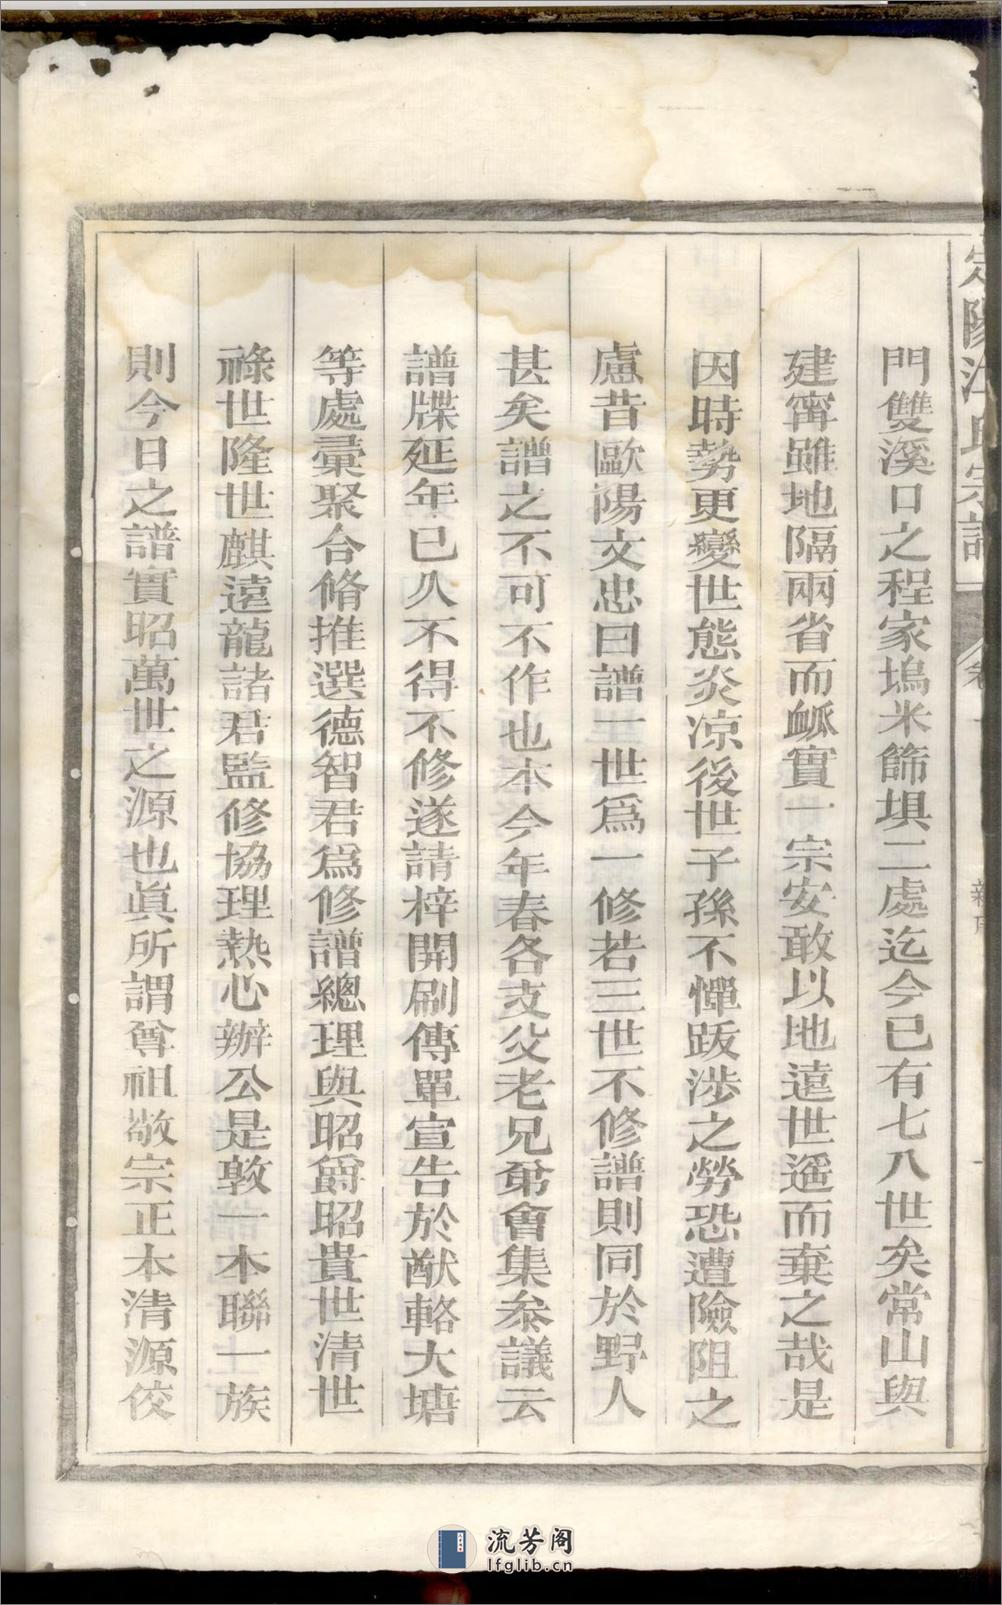 定陽江氏宗譜
門雙溪口之程家塢米篩垻二處迄今已有七八世矣常山與
建甯雖地隔兩省而衇實一宗安敢以地遠世遥而棄之哉是
因時勢更變世態炎凉後世子孫不憚跋涉之勞恐遭險阻之
慮昔歐陽文忠曰譜一世爲一修若三世不修譜則同於野人
甚矣譜之不可不作也本今年春各支父老兄弟會集叅議云
譜牒延年已久不得不修遂請梓開刷傳單宣告於猷輅大塘
等處彙聚合脩推選德智君爲修譜總理與昭爵昭貴世清世
祿世隆世麒遠龍諸君監修協理熱心辦公是敦一本聯一族
則今日之譜實昭萬世之源也眞所謂尊祖敬宗正本清源佼
流芳阁
lfglib.cn